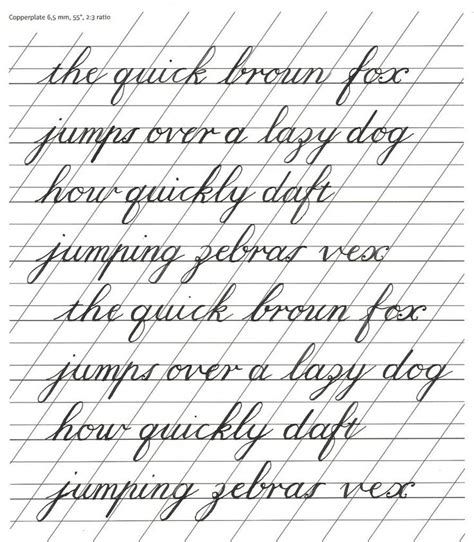 Copperplate 6,5 mm, 55°, 2:3 ratio
the quick brown fox
jumps over a lazy dog
how quickly daft
jumping zebras vex
the quick brown fox
jumps over a lazy dog
how quickly daft
jumping zebras vex